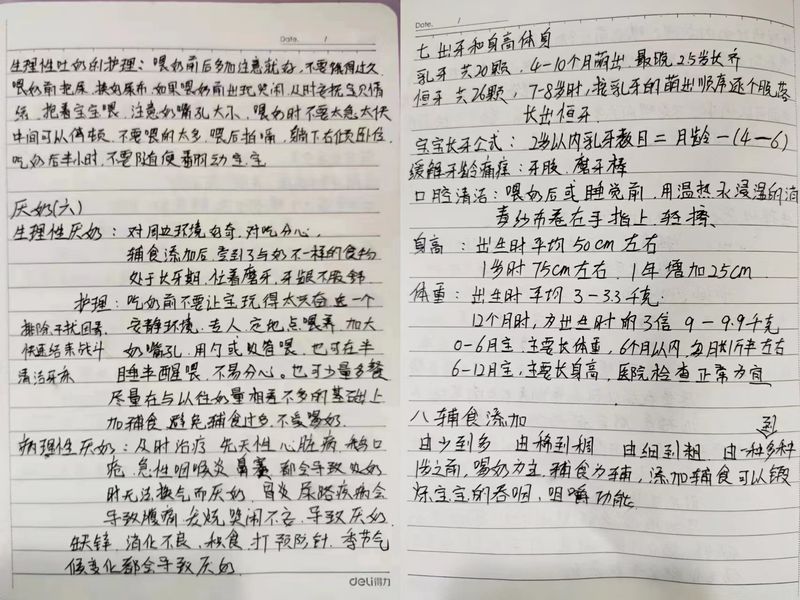 Date. /
生理性吐奶的护理：喂奶前后多加注意就好，不要饿得过久
喂奶前把尿、换好尿布 如果喂奶前出现哭闹，及时安抚宝贝情
绪、抱着宝宝喂、注意奶嘴孔大小，喂奶时不要太急太快
中间可以停顿，不要喂的太多，喂后拍嗝，躺下右侧卧位
吃奶后半小时，不要随便晃动宝宝
厌奶(六)
生理性厌奶：对周边环境好奇，对吃分心，
辅食添加后，受到了与奶不一样的食物
处于长牙期，忙着磨牙，牙龈不服舒
护理：吃奶前不要让宝玩得太兴奋 一个
排除干扰因素 安静环境，专人，定地点喂养，加大
快速结束战斗 奶嘴孔，用勺或吸管喂，也可在半
清洁牙床 睡半醒喂，不易分心。也可少量多餐
尽量在与以往奶量相差不多的基础上
加辅食，避免辅食过多，不爱喝奶.
病理性厌奶：及时治疗 先天性心脏病，鹅口
疮，急性咽喉炎 鼻塞 都会导致吸奶
时无法换气而厌奶，胃炎 尿路疾病会
导致腹痛 发烧 哭闹不安，导致厌奶.
缺锌，消化不良，积食，打预防针，季节气
候变化都会导致厌奶
deli得力
Date. /
七 出牙和身高体身
乳牙 共20颗，4-10个月萌出 最晚 2.5岁长齐
恒牙 共28颗，7-8岁时，按乳牙的萌出顺序逐个脱落
长出恒牙
宝宝长牙公式：2岁以内乳牙数目=月龄-(4-6)
缓解牙龄痛痒：牙胶，磨牙棒
口腔清洁：喂奶后或睡觉前，用温热水浸湿的消
毒纱布卷在手指上，轻擦
身高：出生时平均 50cm 左右
1岁时 75cm左右，1年增加25cm
体重：出生时平均 3-3.3千克.
12个月时，为出生时的3倍 9-9.9千克
0-6月宝，主要长体重，6个月以内，每月长1斤半左右
6-12月宝，主要长身高，医院检查正常为宜
八 辅食添加
由少到多 由稀到稠 由细到粗 由一种到多种
1岁之前，喝奶为主 辅食为辅，添加辅食可以锻
炼宝宝的吞咽，咀嚼功能